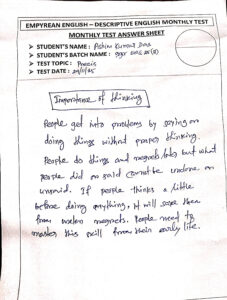 EMPYREAN ENGLISH – DESCRIPTIVE ENGLISH MONTHLY TEST
MONTHLY TEST ANSWER SHEET
➤ STUDENT'S NAME : Kumar Das
➤ STUDENT'S BATCH NAME :
➤ TEST TOPIC : Precis
➤ TEST DATE :
Importance of thinking
People get into problems by saying or
doing things without proper thinking.
People do things and regrets later but what
people did or said cannot be undone or
unsaid. If people thinks a little
before doing anything, it will save them
from useless regrets. People need to
master this skill from their early life.